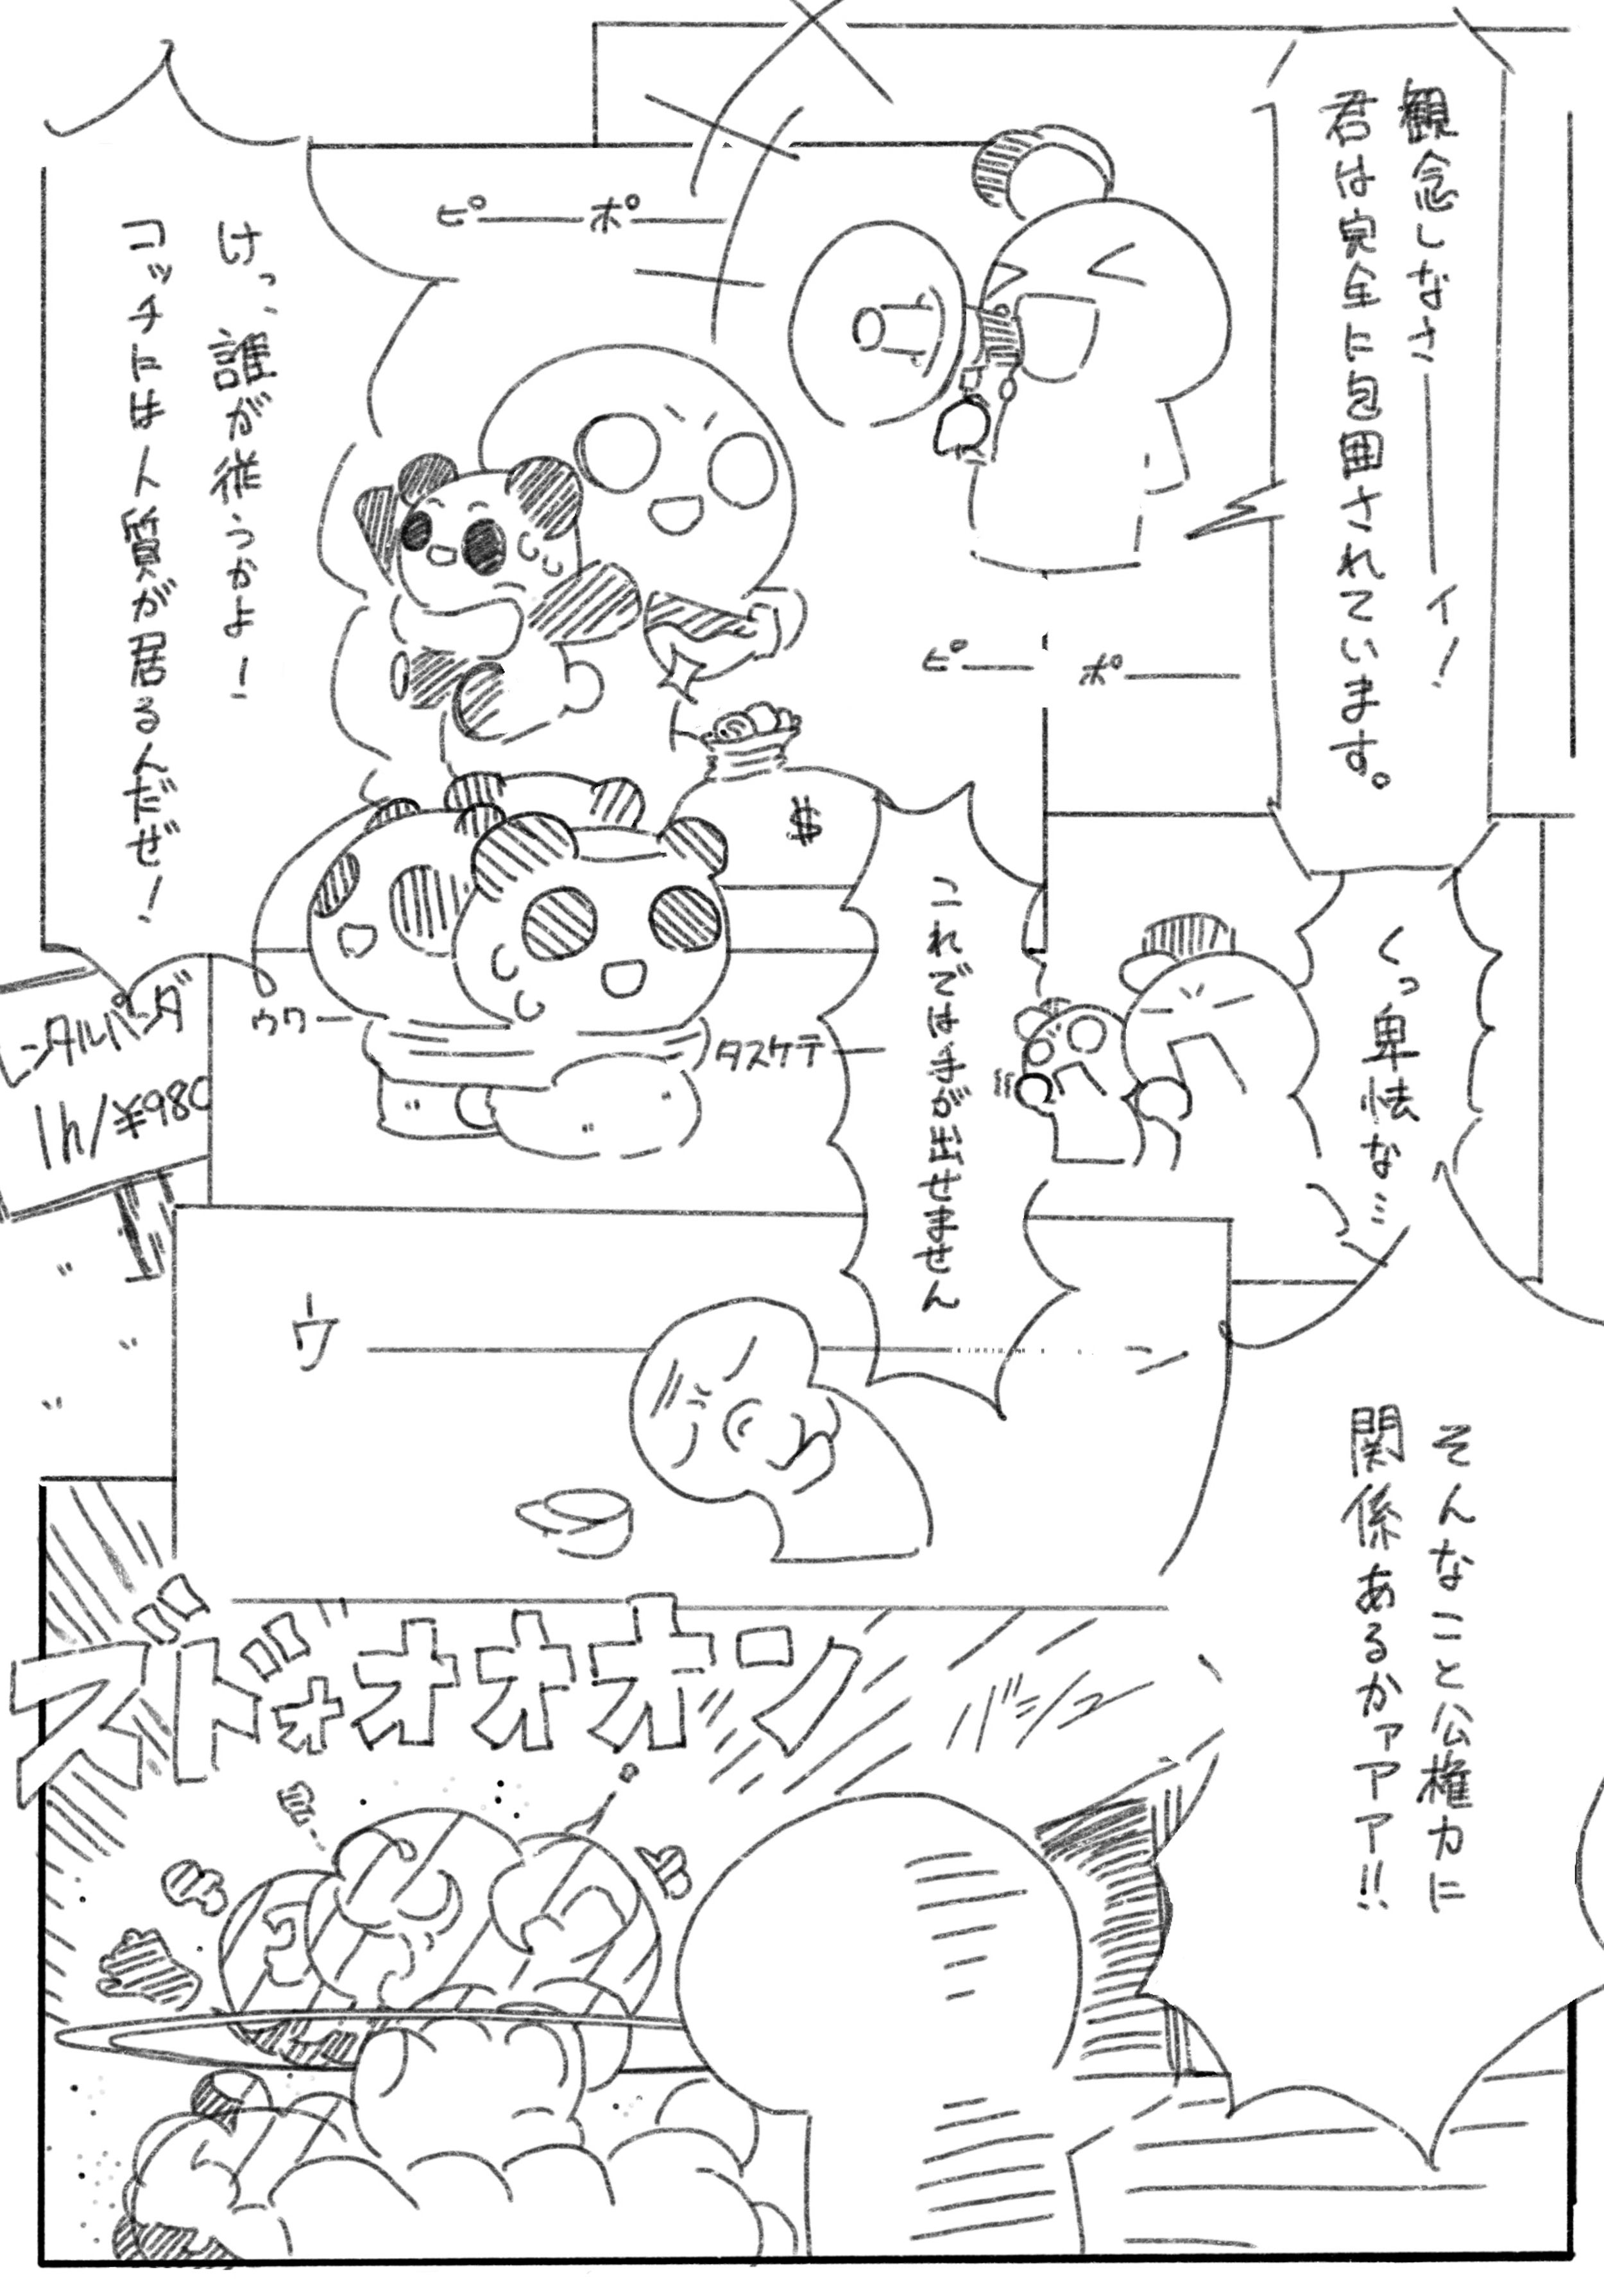 観念しなさーーイ！
君は完全に包囲されています。
ピーポー
ピーポー
けっ、誰が従うかよー！
コッチには人質が居るんだぜ！
$
くっ卑怯な…
これでは手が出せません
ウワー
タスケテー
レンタルパンダ
1h/¥980
ウーーン
そんなこと公権力に
関係あるかァアア!!
バシュー
ズドォオオオン